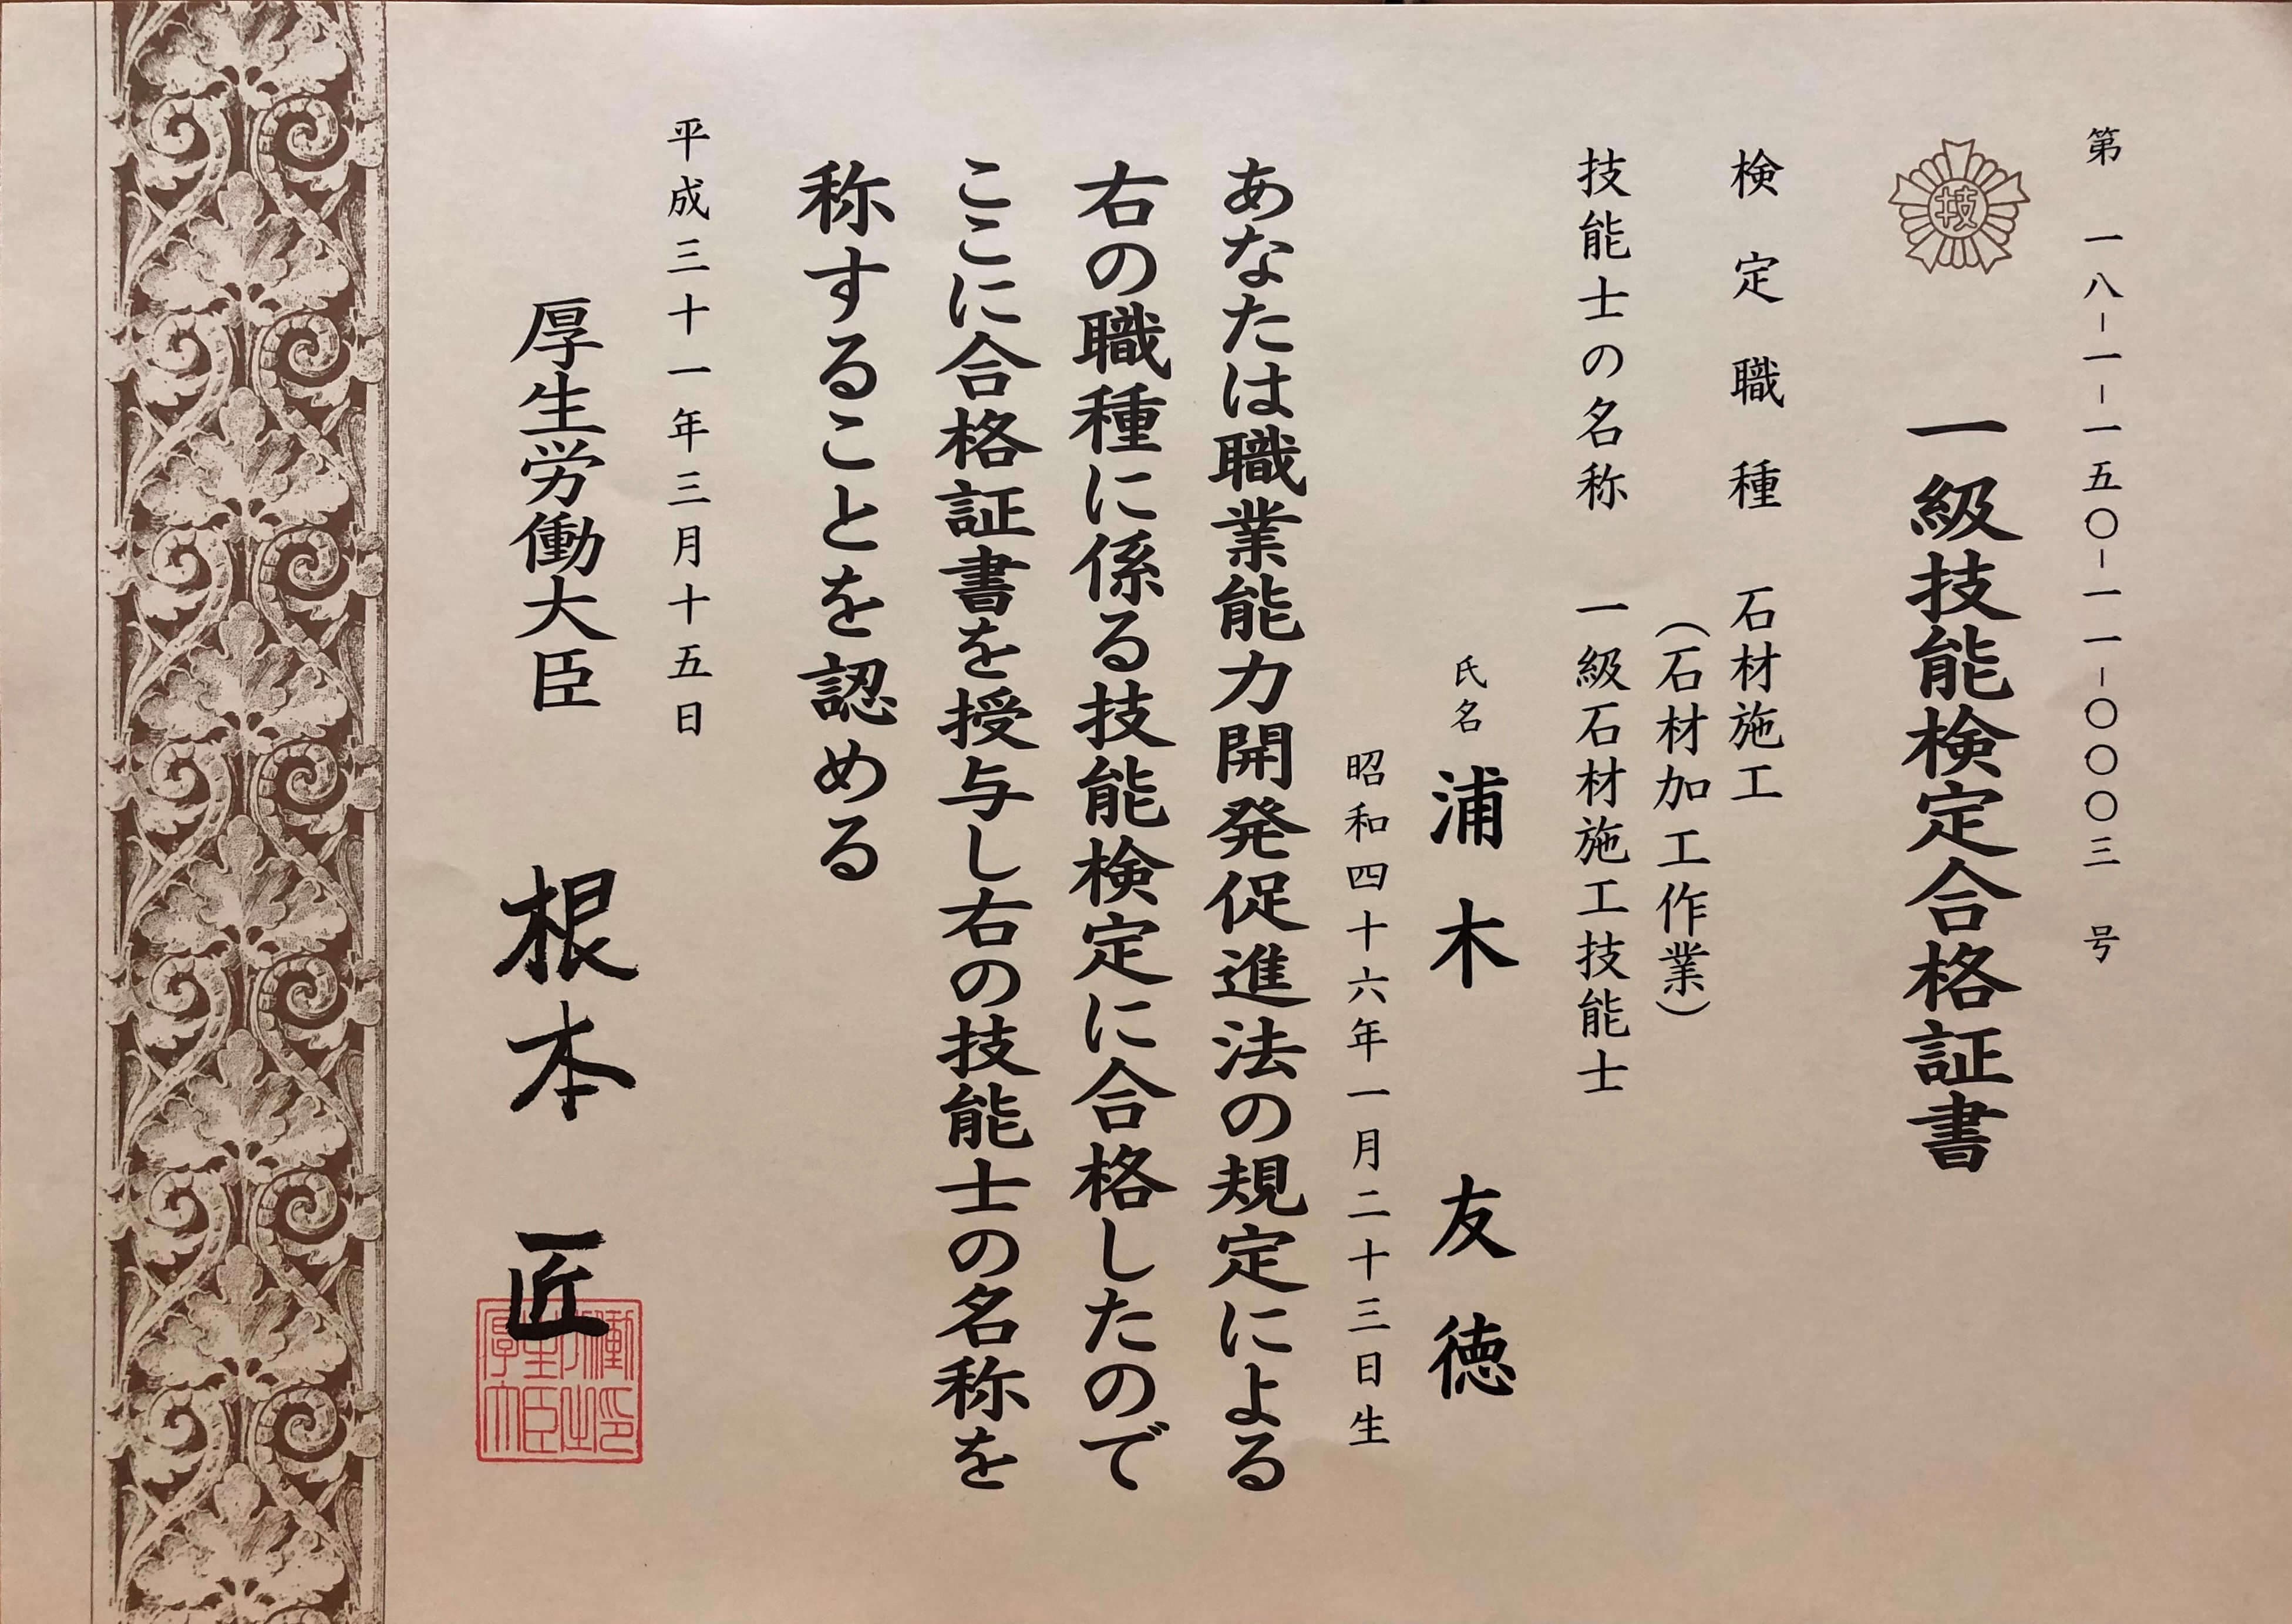 第 一八-一-一五〇-一一-〇〇〇三 号
技
一級技能検定合格証書
検定職種 石材施工
(石材加工作業)
技能士の名称 一級石材施工技能士
氏名 浦木 友徳
昭和四十六年一月二十三日生
あなたは職業能力開発促進法の規定による
右の職種に係る技能検定に合格したので
ここに合格証書を授与し右の技能士の名称を
称することを認める
平成三十一年三月十五日
厚生労働大臣 根本 匠
厚生労働
大臣之印